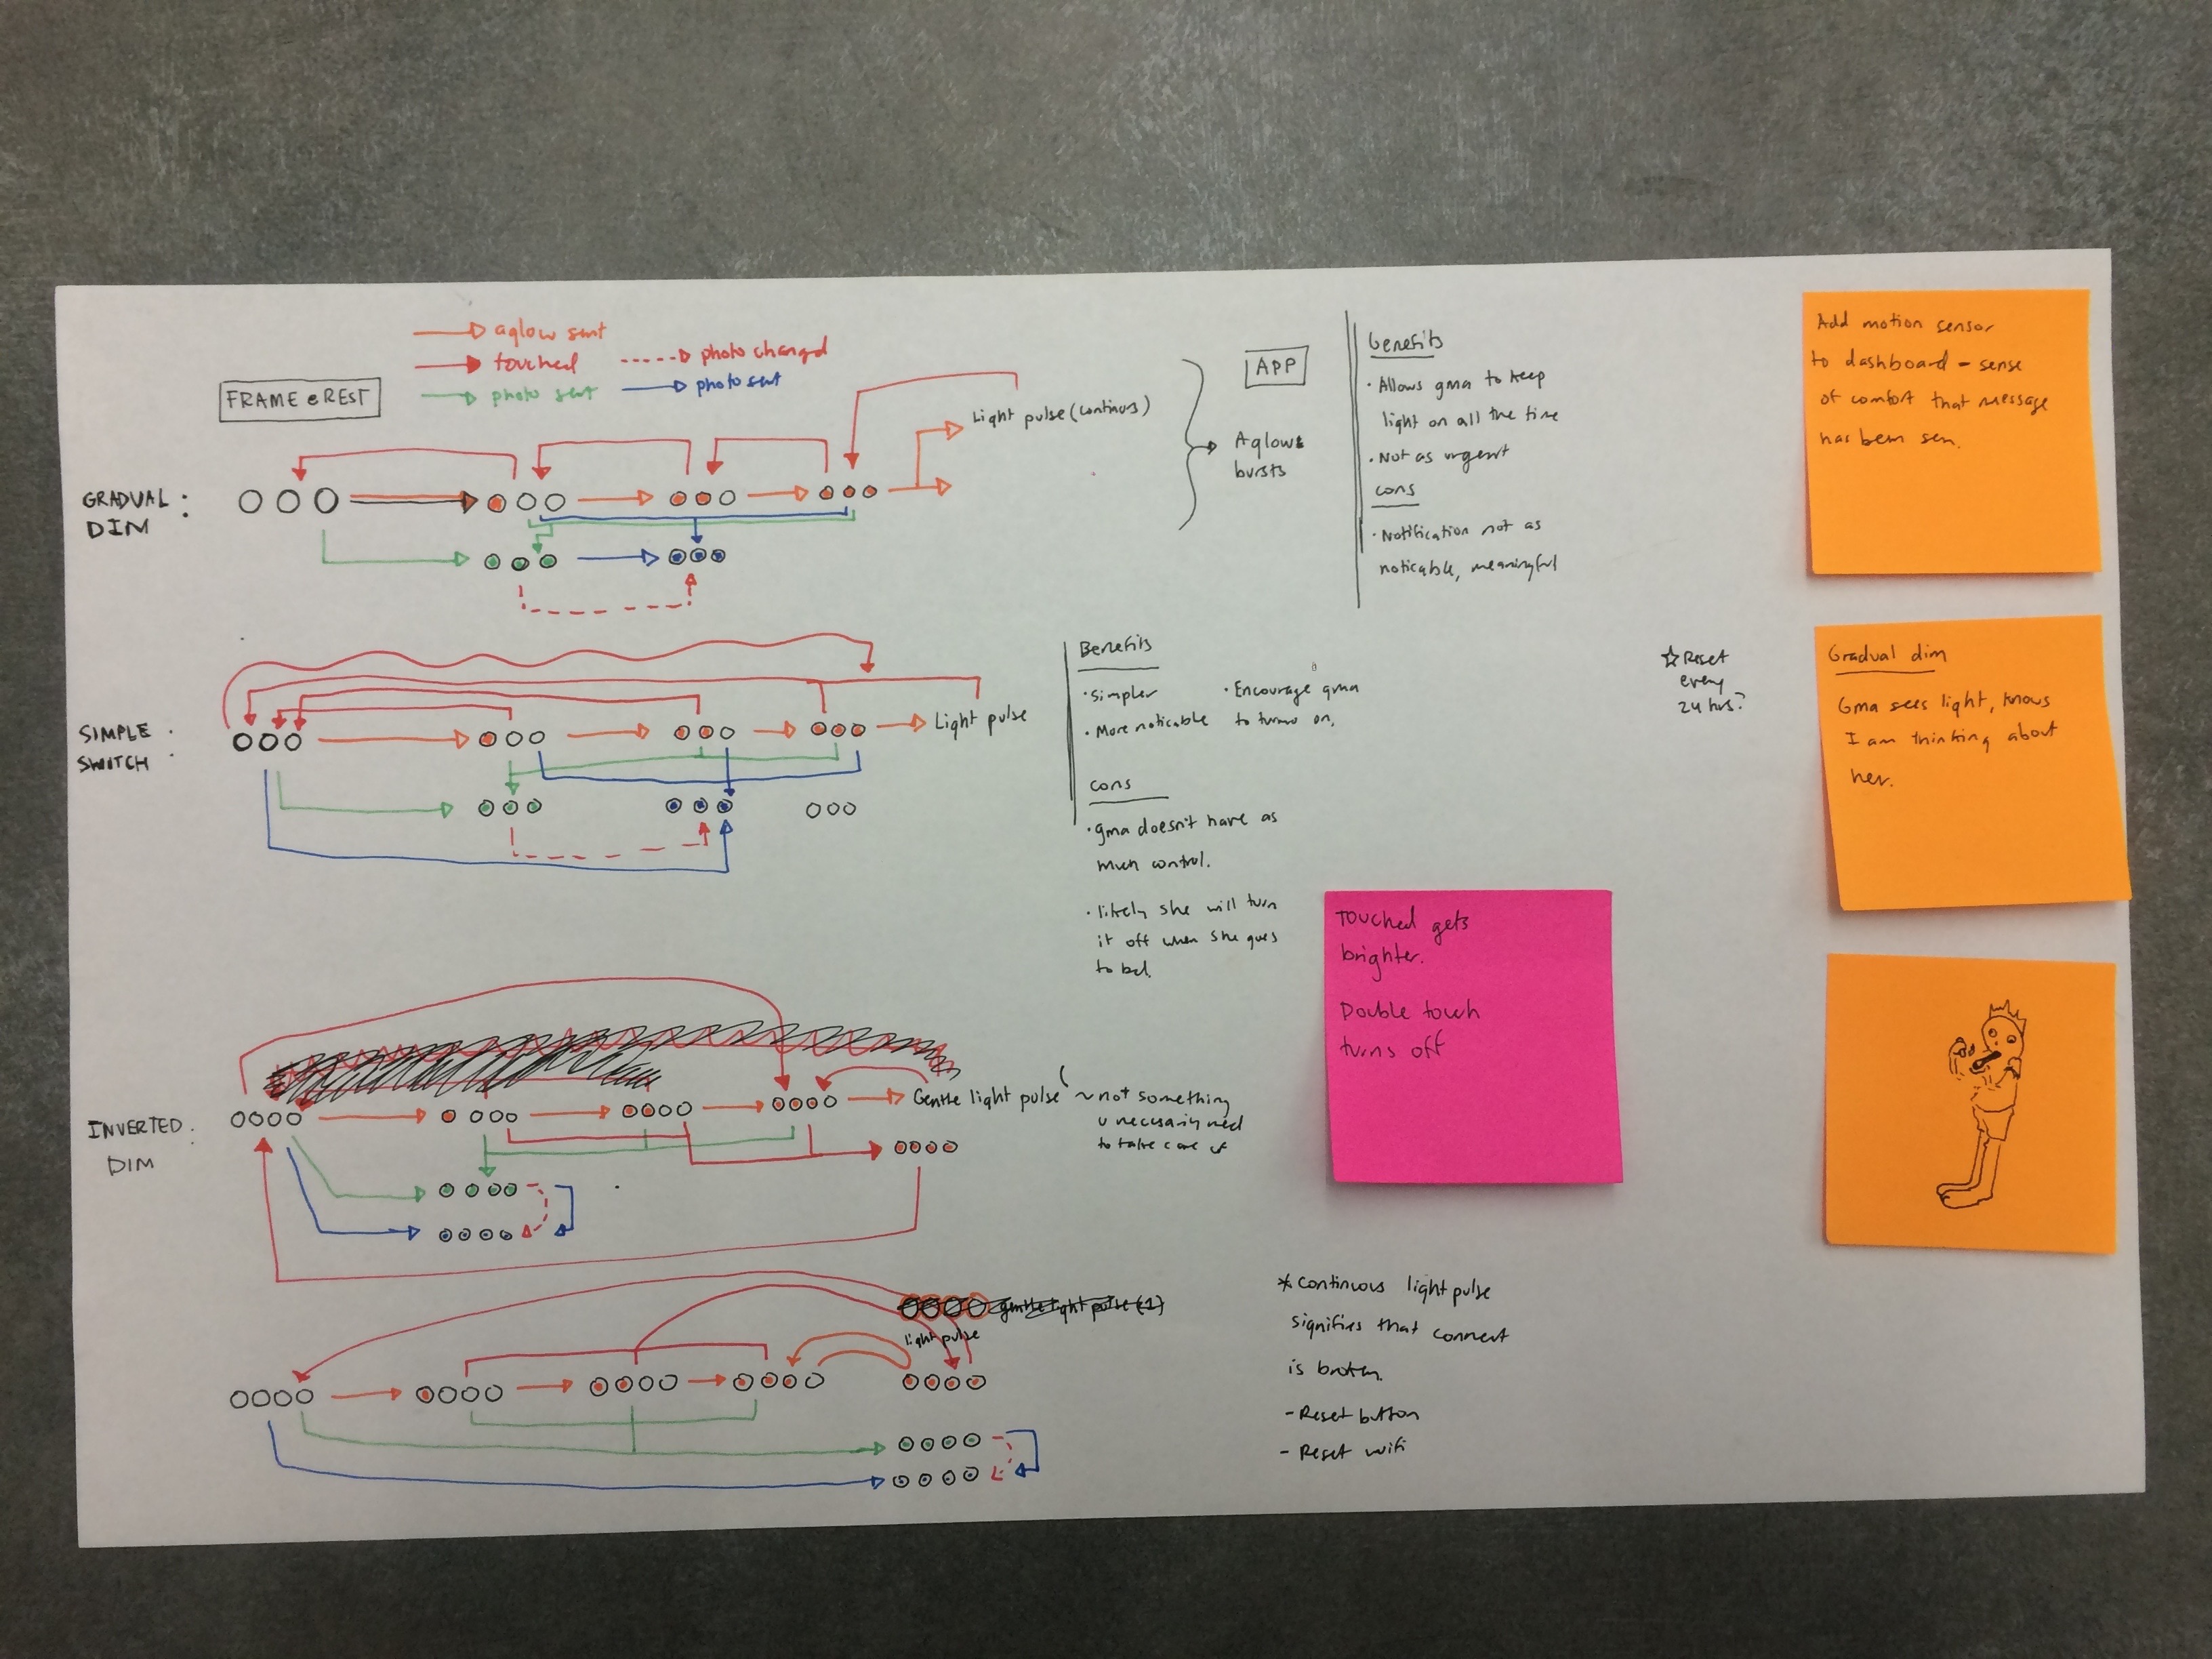 aglow sent
touched
photo changd
photo sent
photo sent
FRAME @ REST
GRADUAL :
DIM
Light pulse (continus)
APP
Aglows
bursts
Benefits
· Allows gma to keep
light on all the time
· Not as urgent
cons
· Notification not as
noticable, meaningful
Add motion sensor
to dashboard - sense
of comfort that message
has been sen.
SIMPLE :
SWITCH
Light pulse
Benefits
· simpler
· More noticable
· Encourage gma
to turn on.
cons
· gma doesn't have as
much control.
· likely she will turn
it off when she goes
to bed.
☆ Reset
every
24 hrs?
Gradual dim
Gma sees light, knows
I am thinking about
her.
Touched gets
brighter.
Double touch
turns off
INVERTED :
DIM
Gentle light pulse ~ not something
u necessarily need
to take care of
gentle light pulse (1)
light pulse
* Continuous light pulse
signifies that connect
is broken.
- Reset button
- Reset wifi